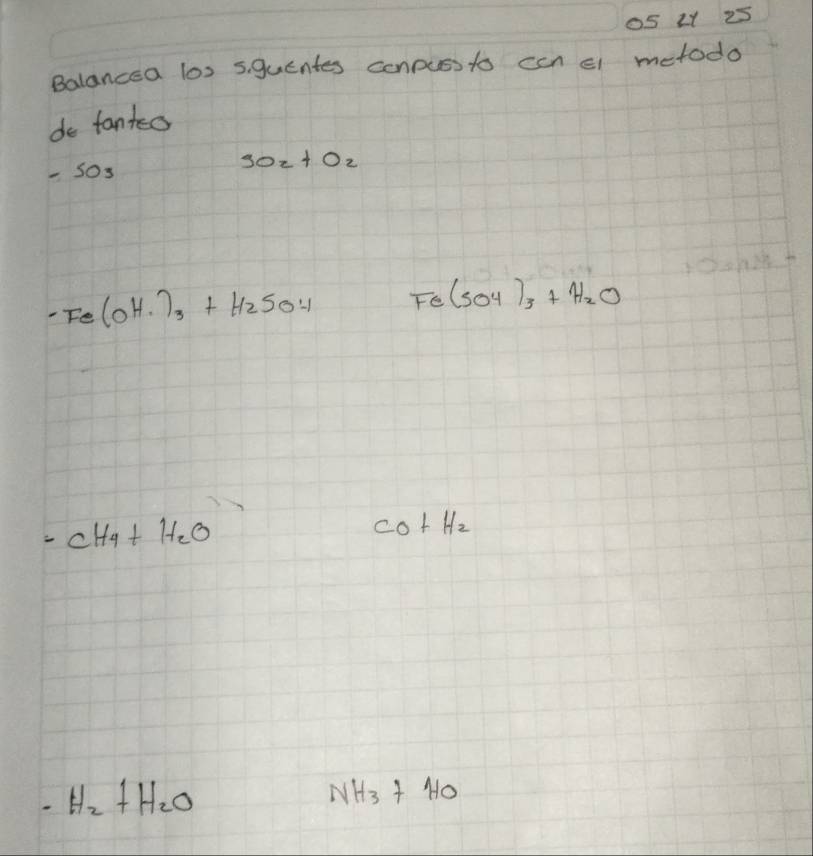 05 21 25
Balancea los s.guentes conpuesto con el metodo
de tanteo
- SO3 SO2 + O2
- Fe(OH.)3 + H2SO4 Fe(SO4)3 + H2O
- CH4 + H2O CO + H2
- H2 + H2O NH3 + HO